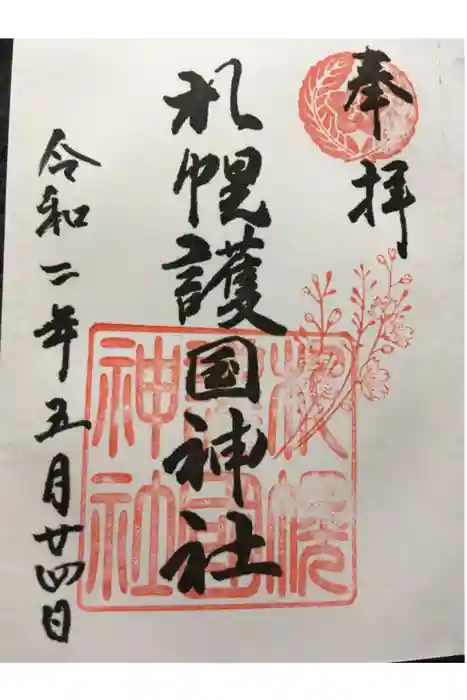 奉拝
札幌護国神社
札幌
護國
神社
令和二年五月廿四日